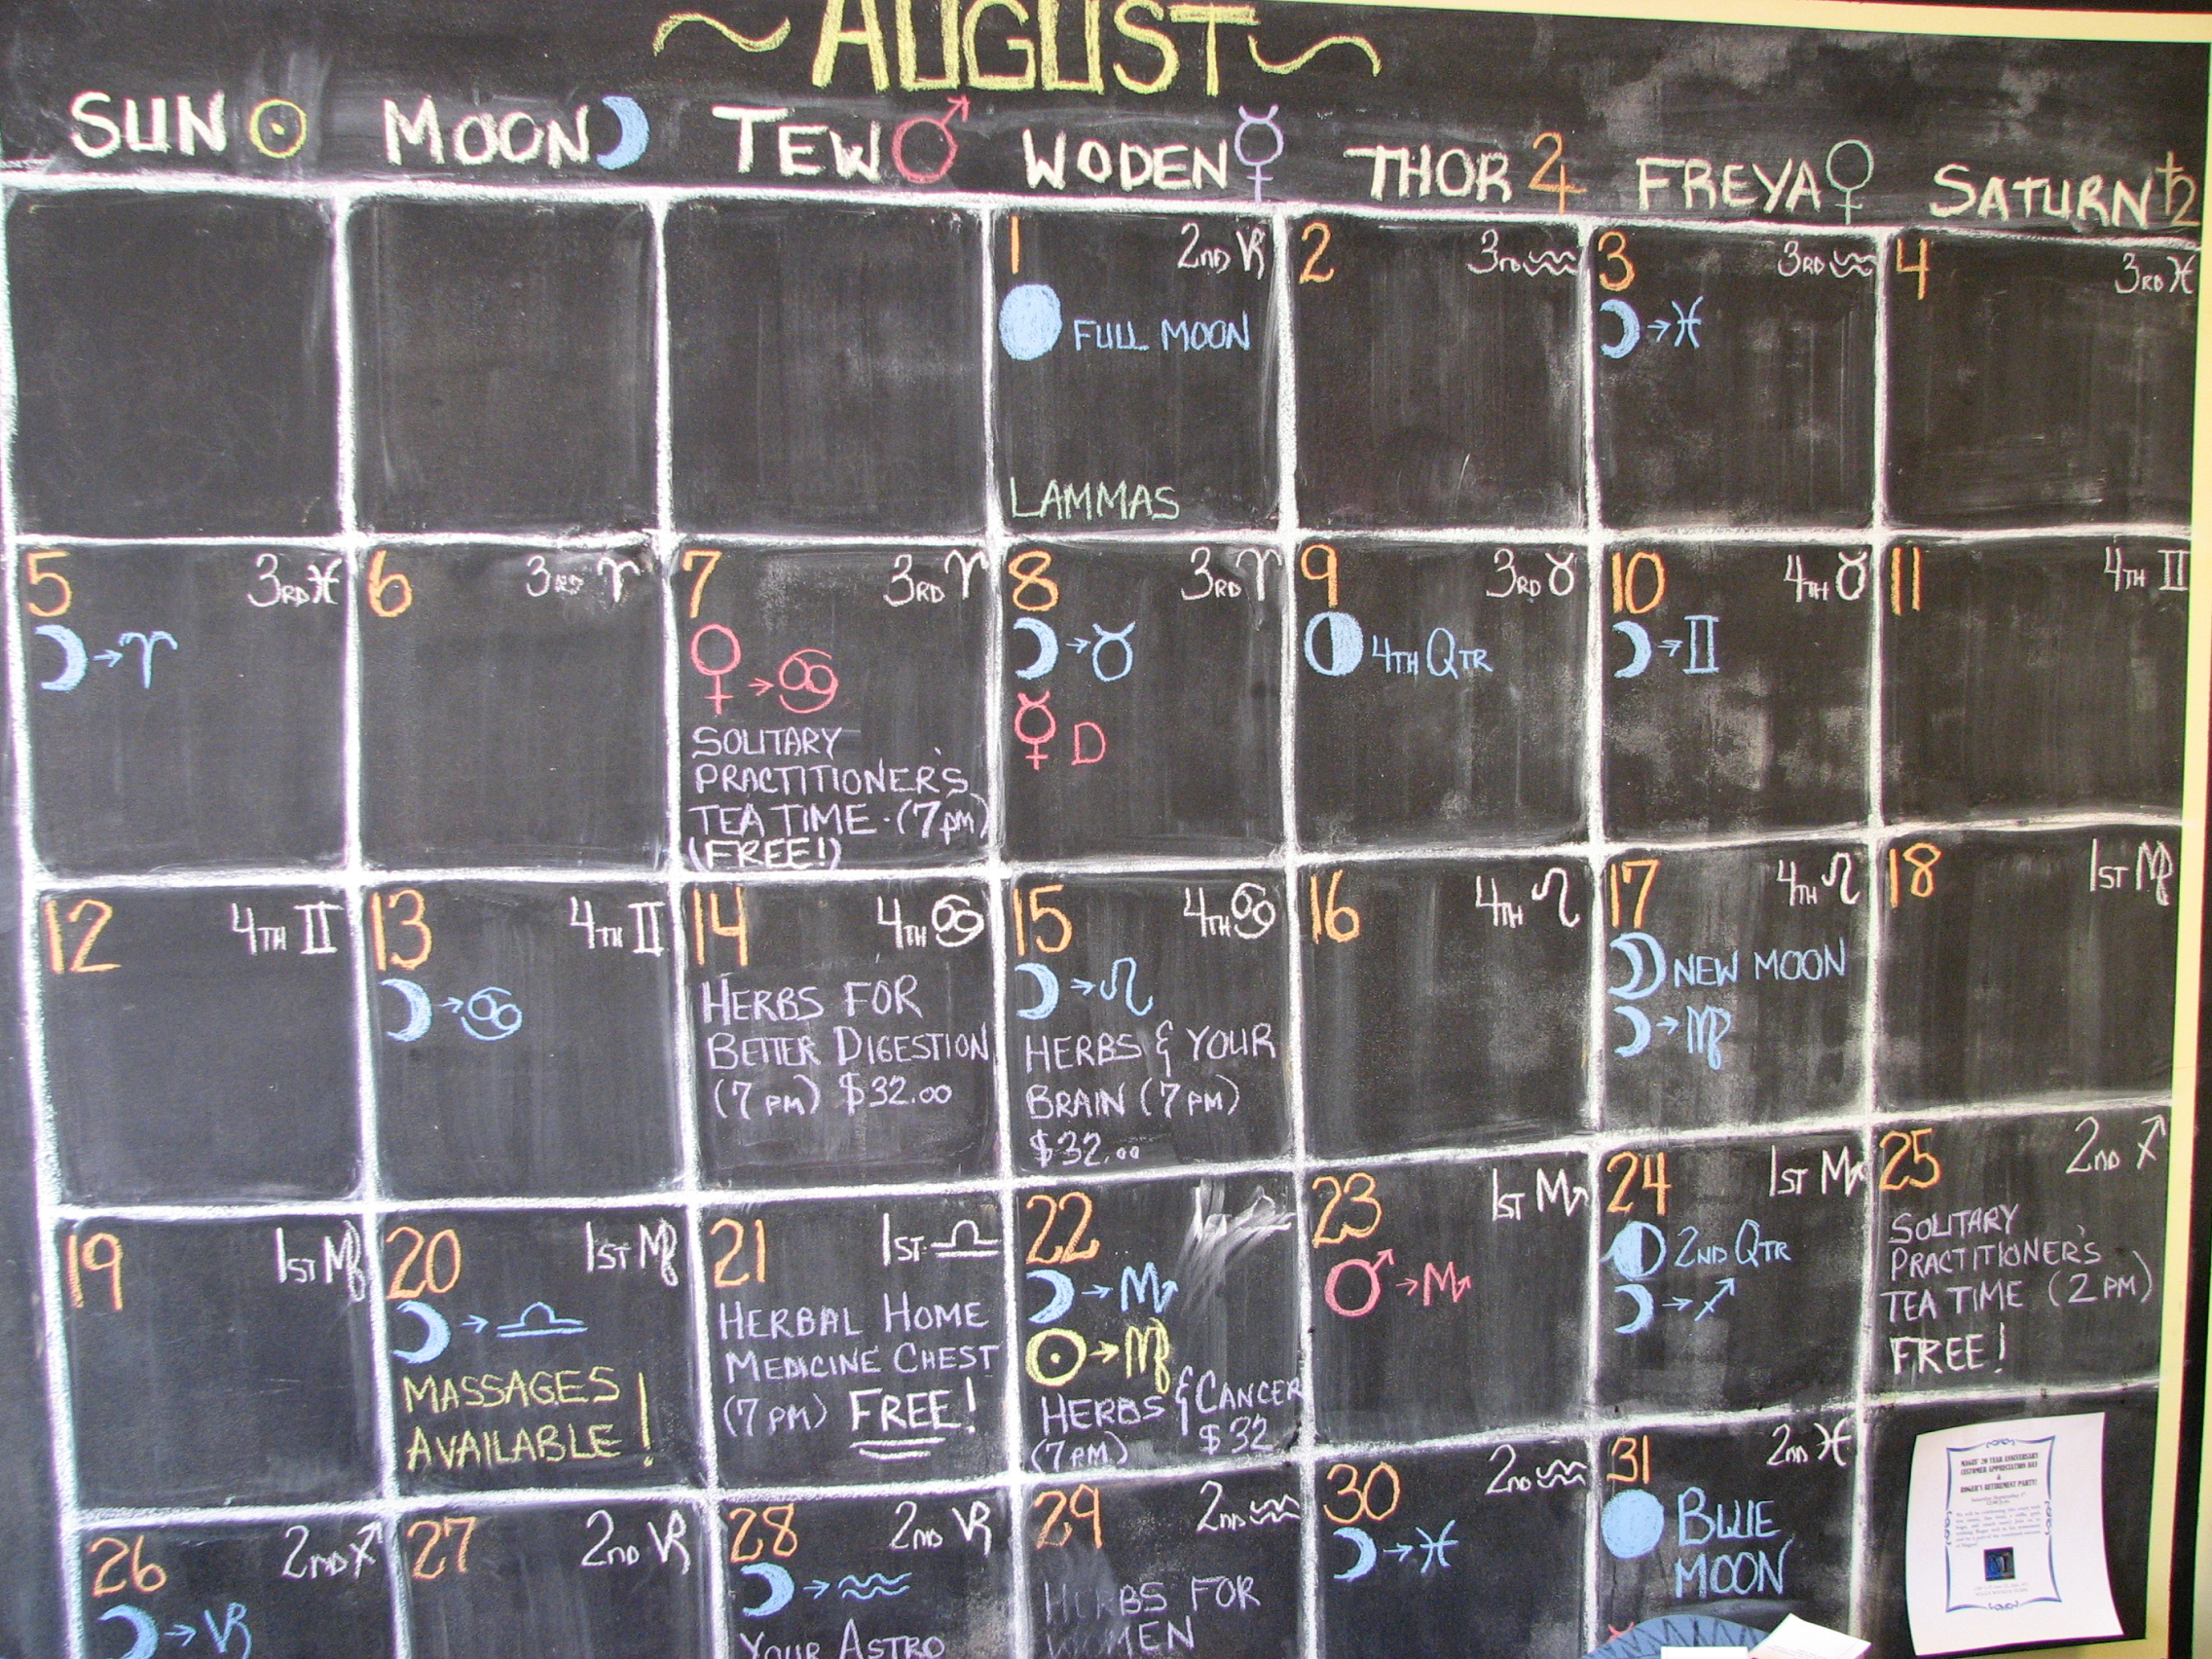 ~AUGUST~
SUN ☉ MOON ☽ TEW ♂ WODEN ☿ THOR ♃ FREYA ♀ SATURN ♄
1 2ND ♑
FULL MOON
LAMMAS
2 3RD ♒
3 3RD ♒
☽→♓
4 3RD ♓
5 3RD ♓
☽→♈
6 3RD ♈
7 3RD ♈
♀→♋
SOLITARY
PRACTITIONER'S
TEA TIME·(7PM)
(FREE!)
8 3RD ♈
☽→♉
☿ D
9 3RD ♉
4TH QTR
10 4TH ♉
☽→♊
11 4TH ♊
12 4TH ♊
13 4TH ♊
☽→♋
14 4TH ♋
HERBS FOR
BETTER DIGESTION
(7 PM) $32.00
15 4TH ♋
☽→♌
HERBS & YOUR
BRAIN (7 PM)
$32.00
16 4TH ♌
17 4TH ♌
NEW MOON
☽→♍
18 1ST ♍
19 1ST ♍
20 1ST ♍
☽→♎
MASSAGES
AVAILABLE!
21 1ST ♎
HERBAL HOME
MEDICINE CHEST
(7 PM) FREE!
22
☽→♏
☉→♍
HERBS & CANCER
(7PM) $32
23 1ST ♏
♂→♏
24 1ST ♏
2ND QTR
☽→♐
25 2ND ♐
SOLITARY
PRACTITIONER'S
TEA TIME (2 PM)
FREE!
26 2ND ♐
☽→♑
27 2ND ♑
28 2ND ♑
☽→♒
YOUR ASTRO
29 2ND ♒
HERBS FOR
WOMEN
30 2ND ♒
☽→♓
31 2ND ♓
BLUE
MOON
20 YEAR ANNIVERSARY
CUSTOMER APPRECIATION DAY
&
ROGER'S RETIREMENT PARTY!